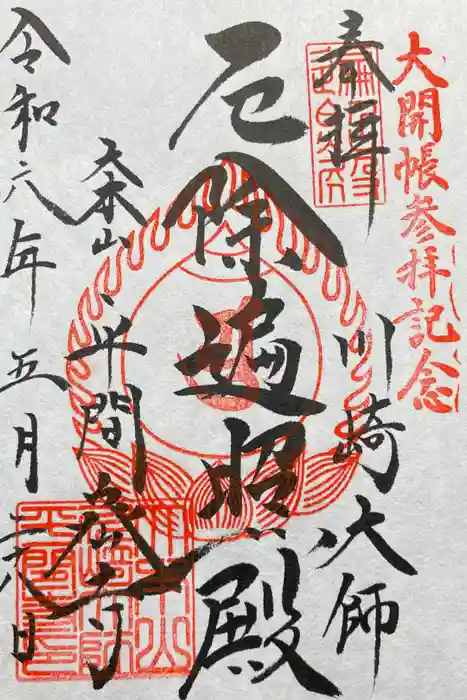 大開帳参拝記念
奉拝
川崎大師
厄除遍照殿
大本山
平間寺
令和六年五月
日